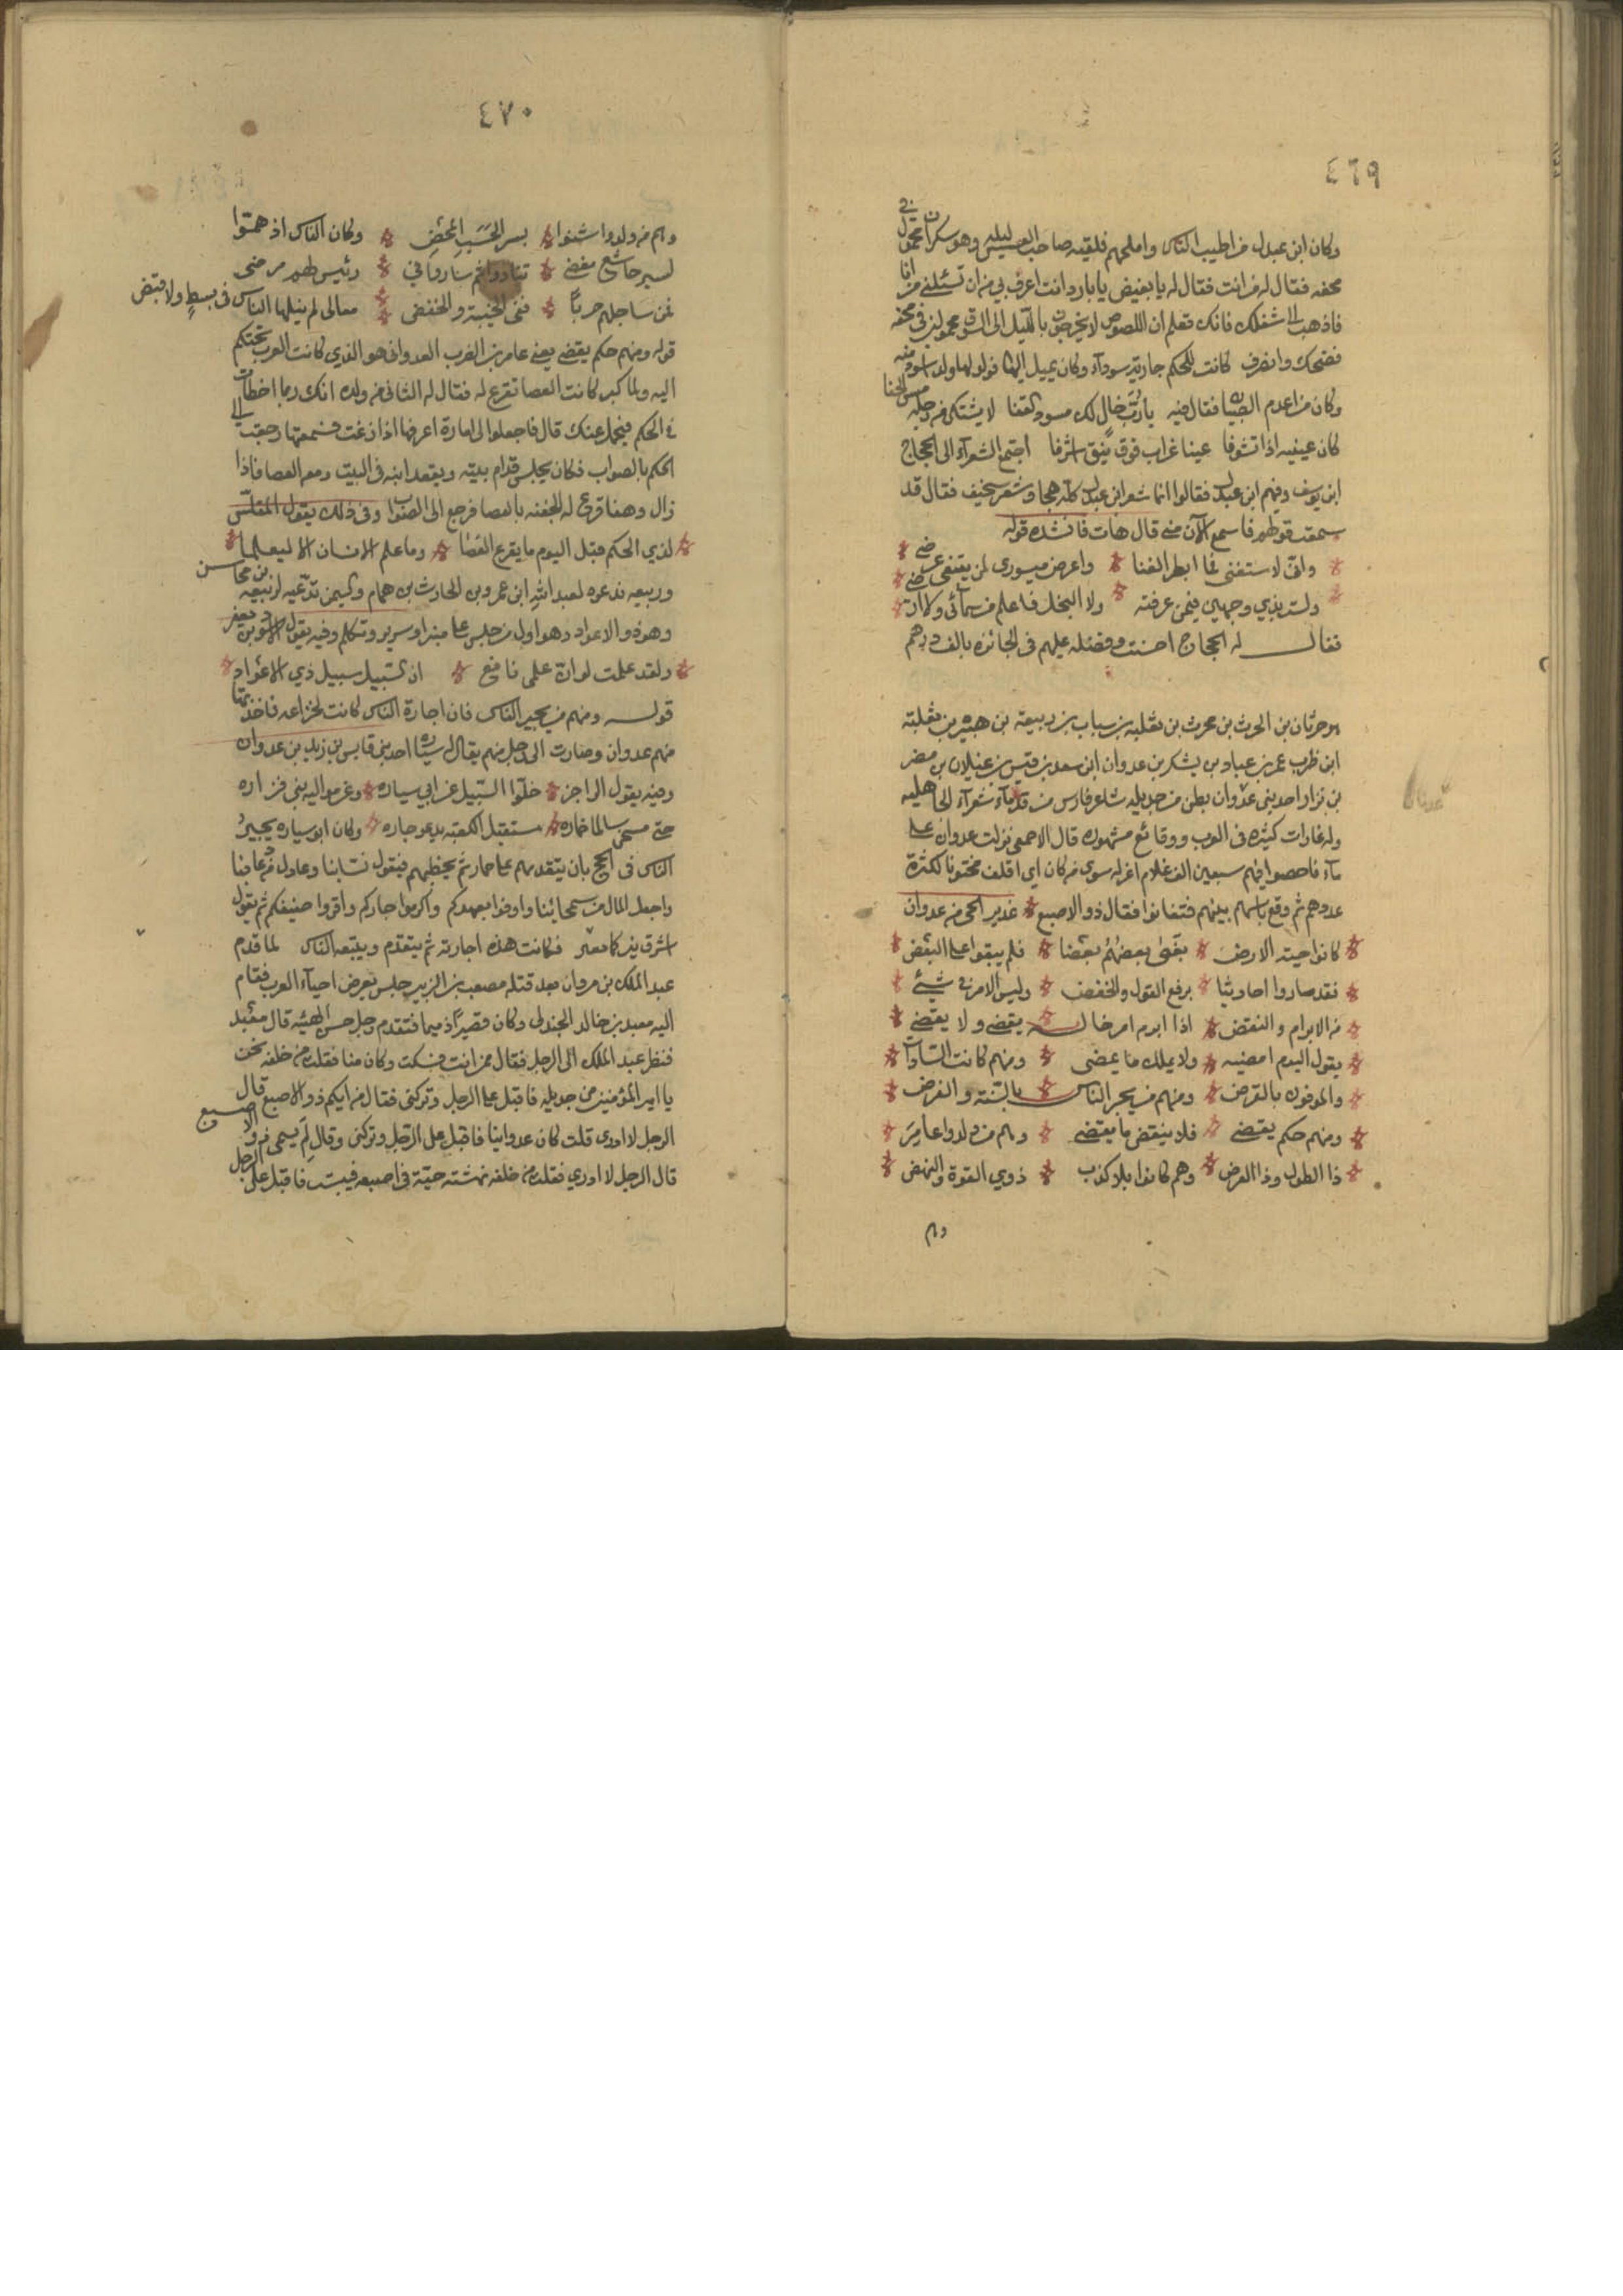 ٤٦٩
وكان ابن عبدل من اطيب الناس واملحهم فلقيه صاحب العسس ليله وهو سكران محمول في
محفه فقال له من انت فقال له يا بغيض يا بارد انت اعرف بي من ان تسئلني من انا
فاذهب الى شغلك فانك تعلم ان اللصوص لا يخرجون بالليل الى السرق محمولين في محفه
فضحك وانصرف كانت للحكم جارية سودآء وكان يميل اليها فولد لها ولد اسود منه
وكان من اعرم الصبيان فقال فيه يا رب خال لك مسود القفا لا يشتكي من رجله مس الحفا
كان عينيه اذا تشوفا عينا غراب فوق نيق اشرفا اجتمع الشعرآء الى الحجاج
ابن يوسف وفيهم ابن عبدل فقالوا انما شعر ابن عبدل كله هجا وشعر سخيف فقال قد
سمعت قولهم فاسمع الآن مني قال هات فانشده قوله
واني لاستغني فما ابطر الغنا واعرض ميسوري لمن يبتغي عرضي
ولست بذي وجهين فيمن عرفته ولا البخل فاعلم من سمآئي ولا ارضي
فقال له الحجاج احسنت وفضله عليهم في الجائزه بالف درهم
هو حرثان بن الحرث بن محرث بن ثعلبه بن سباب بن ربيعة بن هبيره بن ثعلبة
ابن ظرب عمر بن عباد بن يشكر بن عدوان ابن سعد بن قيس بن عيلان بن مضر
بن نزار احد بني عدوان بطن من جديله شاعر فارس من قدمآء شعرآء الجاهليه
وله غارات كثيره في العرب ووقائع مشهوره قال الاصمعي نزلت عدوان على
مآء فاحصوا فيهم سبعين الف غلام اغرل سوى من كان اي اقلف مختونا لكثرة
عددهم ثم وقع باسهم بينهم فتفانوا فقال ذو الاصبع عذير الحي من عدوان
كانوا حية الارض بغى بعضهم بعضا فلم يبقوا على البعض
فقد صاروا احاديثا برفع القول والخفض وليس الامر في شيئ
من الابرام والنقض اذا ابرم امر خاله يقضي ولا يقضي
يقول اليوم امضيه ولا يملك ما يمضي ومنهم كانت السادات
والموفون بالقرض ومنهم من يجير الناس بالسنة والفرض
ومنهم حكم يقضي فلا ينقض ما يقضي وهم من ولدوا عامر
ذا الطول وذا العرض وهم كانوا بلا كذب ذوي القوة والنهض
وهم
٤٧٠
وهم من ولدوا اشنوا بسر الحسب المحض وكان الناس اذ هموا
لسير خاشع مغضي تنادوا ثم ساروا في رئيس لهم مرضي
فمن ساجلهم حربًا ففي الخيبة والخفض معالي لم ينلها الناس في بسط ولا قبض
قوله ومنهم حكم يقضي يعني عامر بن الظرب العدواني هو الذي كانت العرب تحتكم
اليه ولما كبر كانت العصا تقرع له فقال له الثاني من ولده انك ربما اخطات
في الحكم فيحمل عنك قال فاجعلوا لي امارة اعرفها اذا زغت فسمعتها رجعت الى
الحكم بالصواب فكان يجلس قدام بيته ويقعد ابنه في البيت ومعه العصا فاذا
زال وهفا قرع له الجفنه بالعصا فرجع الى الصواب وفي ذلك يقول المتلمس
لذي الحكم قبل اليوم ما يقرع العصا وما علم الانسان الا ليعلما
وربيعه تدعوه لعبد الله ابن عمرو بن الحارث بن همام واليمن تدعيه لربيعه بن مخاسن
وهو ذو الاعواد وهو اول من جلس على منبر او سرير وتكلم وفيه يقول الاسود بن يعفر
ولقد علمت لو ان علمي نافع ان السبيل سبيل ذي الاعواد
قوله ومنهم من يجير الناس فان اجازة الناس كانت لخزاعه فاخذتها
منهم عدوان وصارت الى رجل منهم يقال له سياره احد بني قابس بن زيد بن عدوان
وفيه يقول الراجز خلوا السبيل عن ابي سياره وعن مواليه بني فزاره
حتى مسخى سالما حماره مستقبل الكعبة يدعو جاره وكان ابو سياره يجيز
الناس في الحج بان يتقدمهم على حمار ثم يخطبهم فيقول نسابنا وعادل في رعائنا
واجعل المال في سمحائنا واوفوا بعهدكم واكرموا جاركم واقروا ضيفكم ثم يقول
اشرق ثبير كما نغير فكانت هذه اجازته ثم يتقدم ويتبعه الناس لما قدم
عبد الملك بن مروان بعد قتله مصعب بن الزبير جلس يعرض احيآء العرب فقام
اليه معبد بن خالد الجدلي وكان قصيرًا ذميما فتقدم رجل حسن الهيئه قال معبد
فنظر عبد الملك الى الرجل فقال ممن انت فسكت وكان منا فقلت من خلفه نحن
يا امير المؤمنين من جديله فاقبل على الرجل وتركني فقال من ايكم ذو الاصبع قال
الرجل لا ادري قلت كان عدوانيا فاقبل على الرجل وتركني وقال لم يسمى ذو الاصبع
قال الرجل لا ادري فقلت من خلفه نهشته حية في اصبعه فيبست فاقبل على الرجل